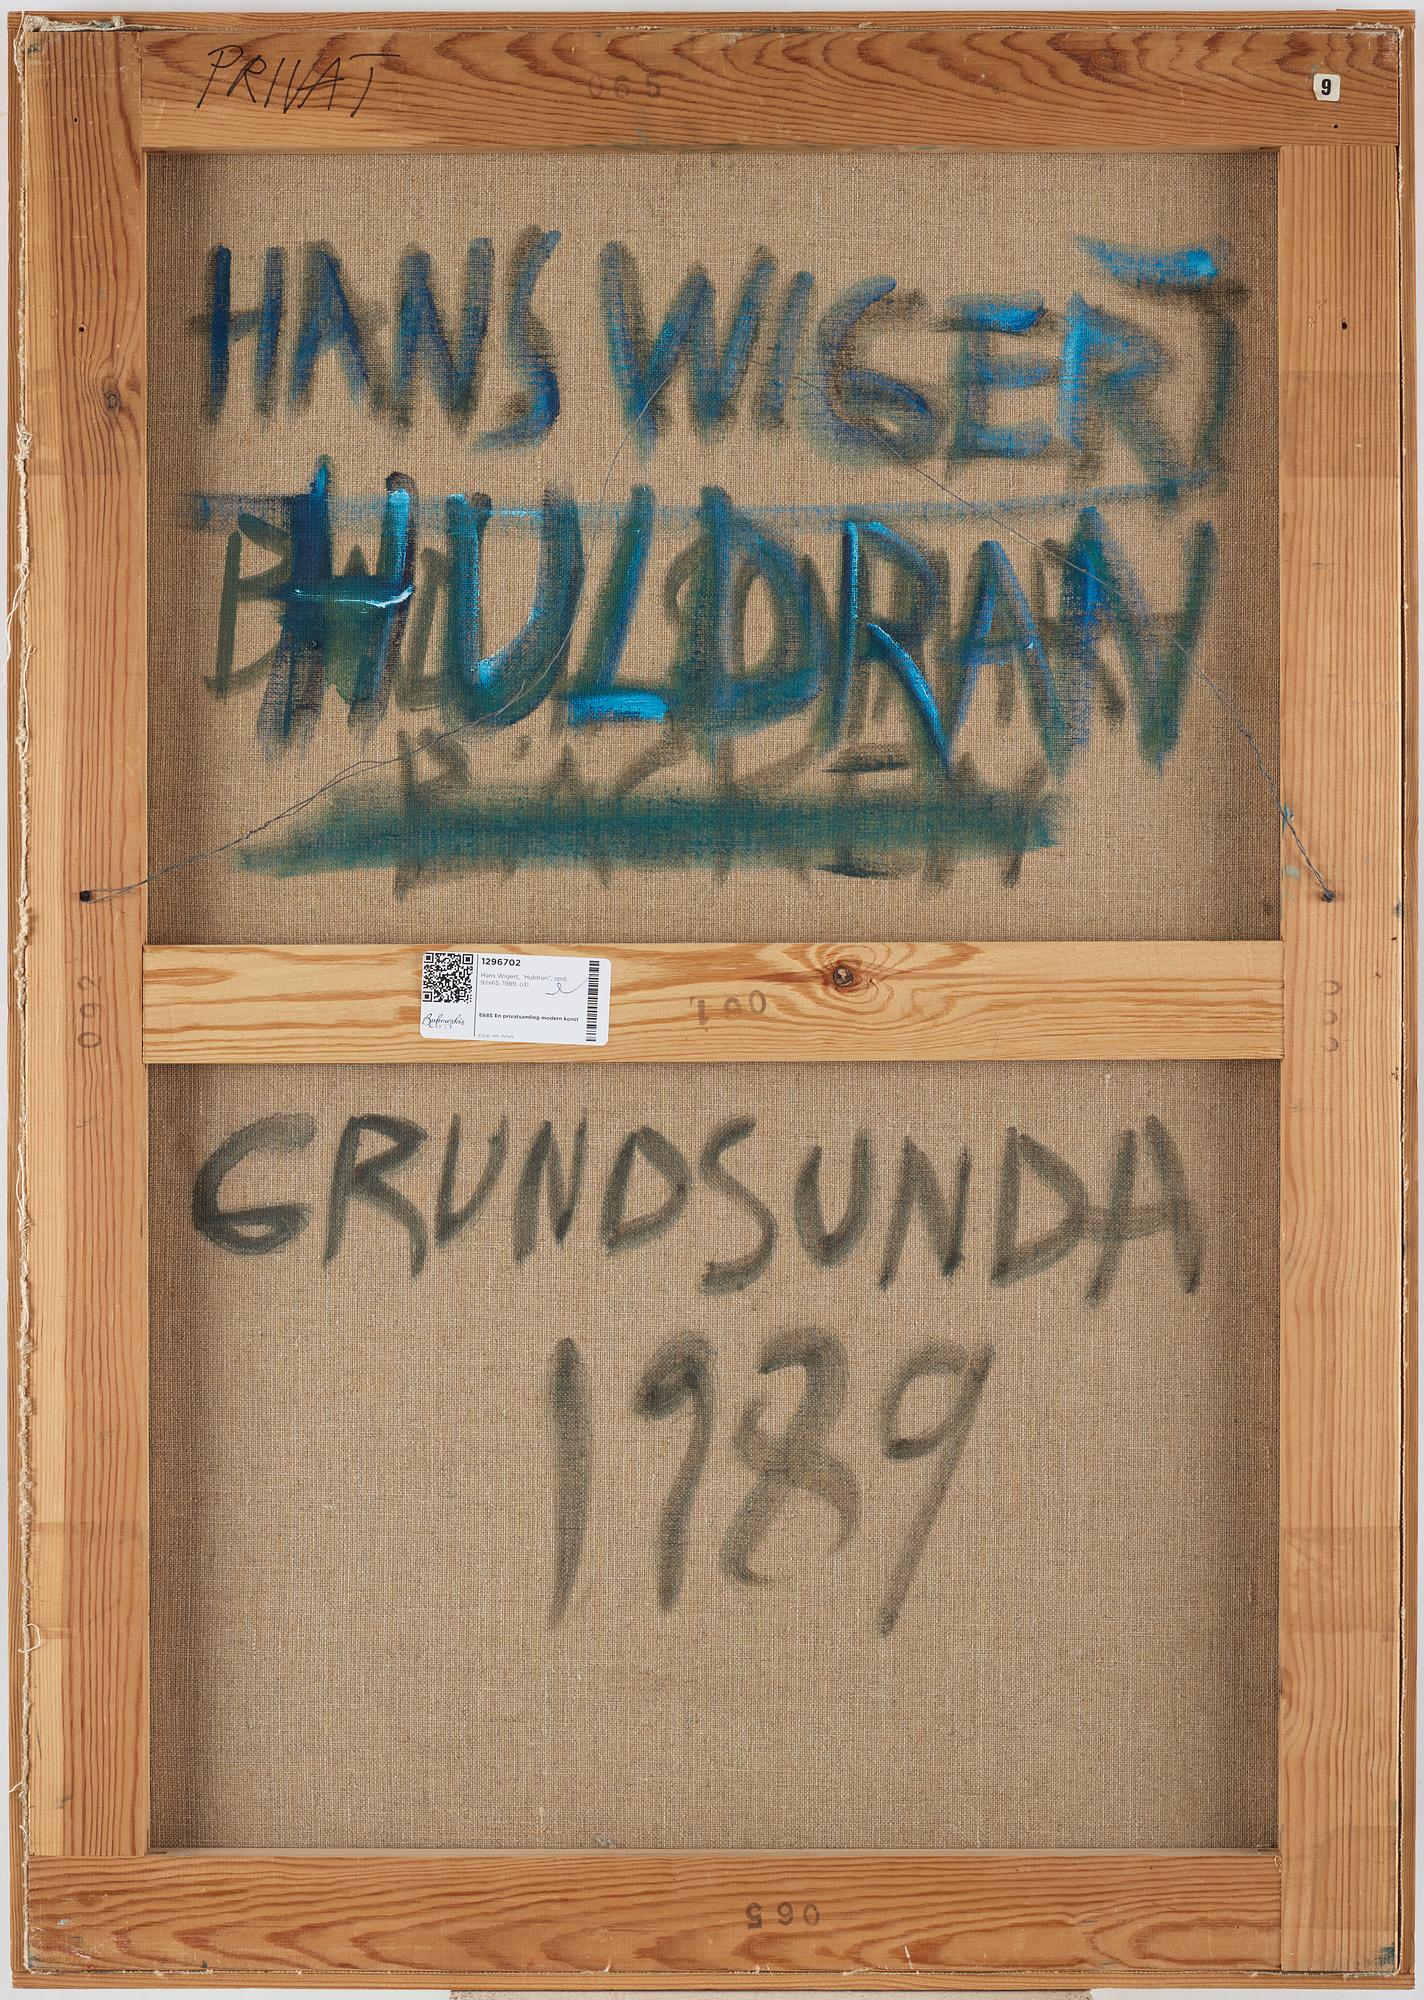 PRIVAT
065
9
HANS WIGERT
HULDRAN
1296702
Hans Wigert, "Huldran", opd,
92x65, 1989, (d)
Bukowskis
E685 En privatsamling modern konst
092
100
GRUNDSUNDA
1989
065